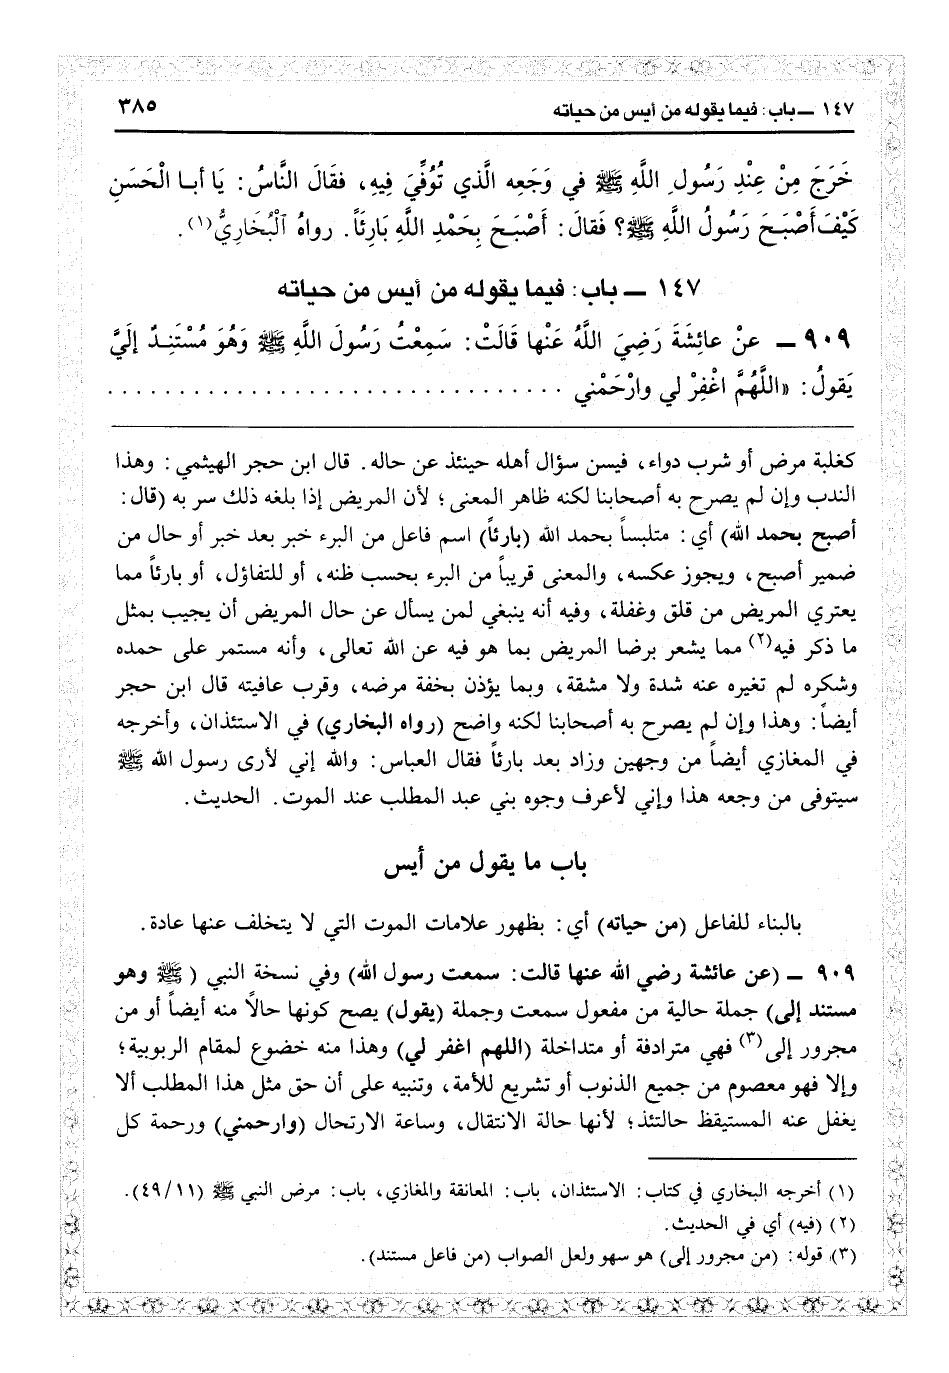 ١٤٧ ــ باب: فيما يقوله من أيس من حياته ٣٨٥
خَرَجَ مِنْ عِنْدِ رَسُولِ اللَّهِ ﷺ في وَجَعِه الَّذي تُوُفِّيَ فِيهِ، فقَالَ النَّاسُ: يَا أبـا الْحَسَنِ
كَيْفَ أَصْبَحَ رَسُولُ اللَّهِ ﷺ؟ فَقَالَ: أَصْبَحَ بِحَمْدِ اللَّهِ بَارِئَاً. رواهُ ٱلْبُخَارِيُّ(١).
١٤٧ ــ باب: فيما يقوله من أيس من حياته
٩٠٩ ــ عنْ عائِشَةَ رَضِيَ اللَّهُ عَنْها قَالَتْ: سَمِعْتُ رَسُولَ اللَّهِ ﷺ وَهُوَ مُسْتَنِـدٌ إليَّ
يَقولُ: «اللَّهُمَّ اغْفِرْ لي وارْحَمْني ................................
كغلبة مرض أو شرب دواء، فيسن سؤال أهله حينئذ عن حاله. قال ابن حجر الهيثمي: وهذا
الندب وإن لم يصرح به أصحابنا لكنه ظاهر المعنى؛ لأن المريض إذا بلغه ذلك سر به (قال:
أصبح بحمد الله) أي: متلبساً بحمد الله (بارئاً) اسم فاعل من البرء خبر بعد خبر أو حال من
ضمير أصبح، ويجوز عكسه، والمعنى قريباً من البرء بحسب ظنه، أو للتفاؤل، أو بارئاً مما
يعتري المريض من قلق وغفلة، وفيه أنه ينبغي لمن يسأل عن حال المريض أن يجيب بمثل
ما ذكر فيه(٢) مما يشعر برضا المريض بما هو فيه عن الله تعالى، وأنه مستمر على حمده
وشكره لم تغيره عنه شدة ولا مشقة، وبما يؤذن بخفة مرضه، وقرب عافيته قال ابن حجر
أيضاً: وهذا وإن لم يصرح به أصحابنا لكنه واضح (رواه البخاري) في الاستئذان، وأخرجه
في المغازي أيضاً من وجهين وزاد بعد بارئاً فقال العباس: والله إني لأرى رسول الله ﷺ
سيتوفى من وجعه هذا وإني لأعرف وجوه بني عبد المطلب عند الموت. الحديث.
باب ما يقول من أيس
بالبناء للفاعل (من حياته) أي: بظهور علامات الموت التي لا يتخلف عنها عادة.
٩٠٩ ــ (عن عائشة رضي الله عنها قالت: سمعت رسول الله) وفي نسخة النبي (ﷺ وهو
مستند إلى) جملة حالية من مفعول سمعت وجملة (يقول) يصح كونها حالاً منه أيضاً أو من
مجرور إلى(٣) فهي مترادفة أو متداخلة (اللهم اغفر لي) وهذا منه خضوع لمقام الربوبية؛
وإلا فهو معصوم من جميع الذنوب أو تشريع للأمة، وتنبيه على أن حق مثل هذا المطلب ألا
يغفل عنه المستيقظ حالتئذ؛ لأنها حالة الانتقال، وساعة الارتحال (وارحمني) ورحمة كل
(١) أخرجه البخاري في كتاب: الاستئذان، باب: المعانقة والمغازي، باب: مرض النبي ﷺ (٤٩/١١).
(٢) (فيه) أي في الحديث.
(٣) قوله: (من مجرور إلى) هو سهو ولعل الصواب (من فاعل مستند).